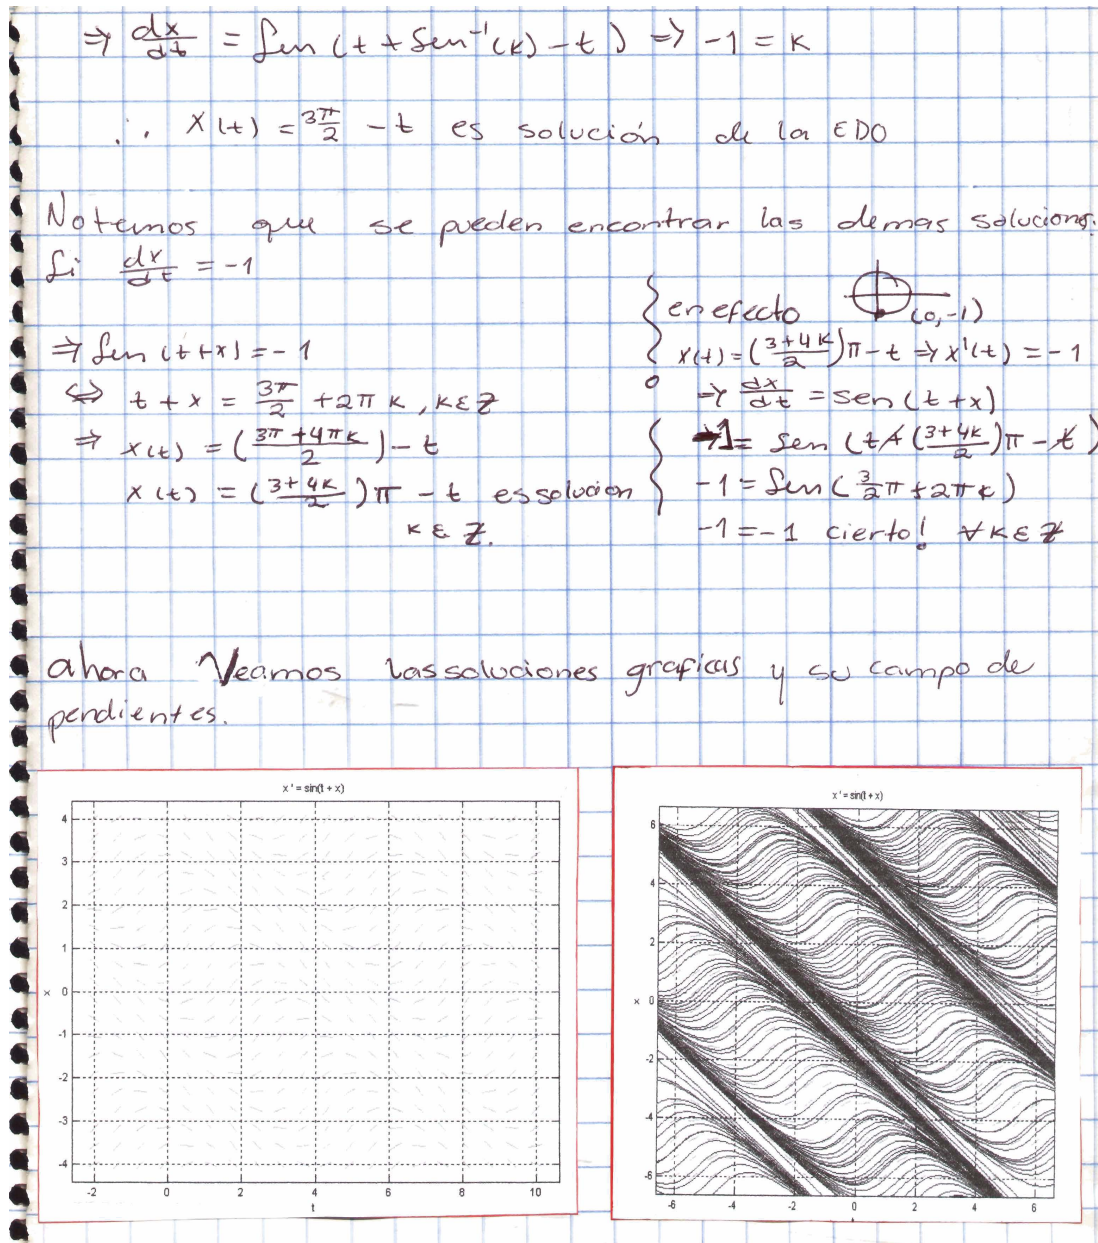 ⇒ dx/dt = Sen(t + Sen⁻¹(k) - t) ⇒ -1 = k
∴ x(t) = 3π/2 - t es solución de la EDO
Notemos que se pueden encontrar las demas solucions.
Si dx/dt = -1
⇒ Sen(t+x) = -1
⇔ t + x = 3π/2 + 2πk, k∈Z
⇒ x(t) = ((3π+4πk)/2) - t
x(t) = ((3+4k)/2)π - t es solución
k ∈ Z.
en efecto (0,-1)
x(t) = ((3+4k)/2)π - t ⇒ x'(t) = -1
⇒ dx/dt = sen(t+x)
-1 = Sen(t + ((3+4k)/2)π - t)
-1 = Sen(3/2 π + 2πk)
-1 = -1 cierto! ∀k∈Z
ahora Veamos las soluciones graficas y su campo de
pendientes.
x ' = sin(t + x)
4
3
2
1
0
-1
-2
-3
-4
x
-2 0 2 4 6 8 10
t
x ' = sin(t + x)
6
4
2
0
-2
-4
-6
x
-6 -4 -2 0 2 4 6